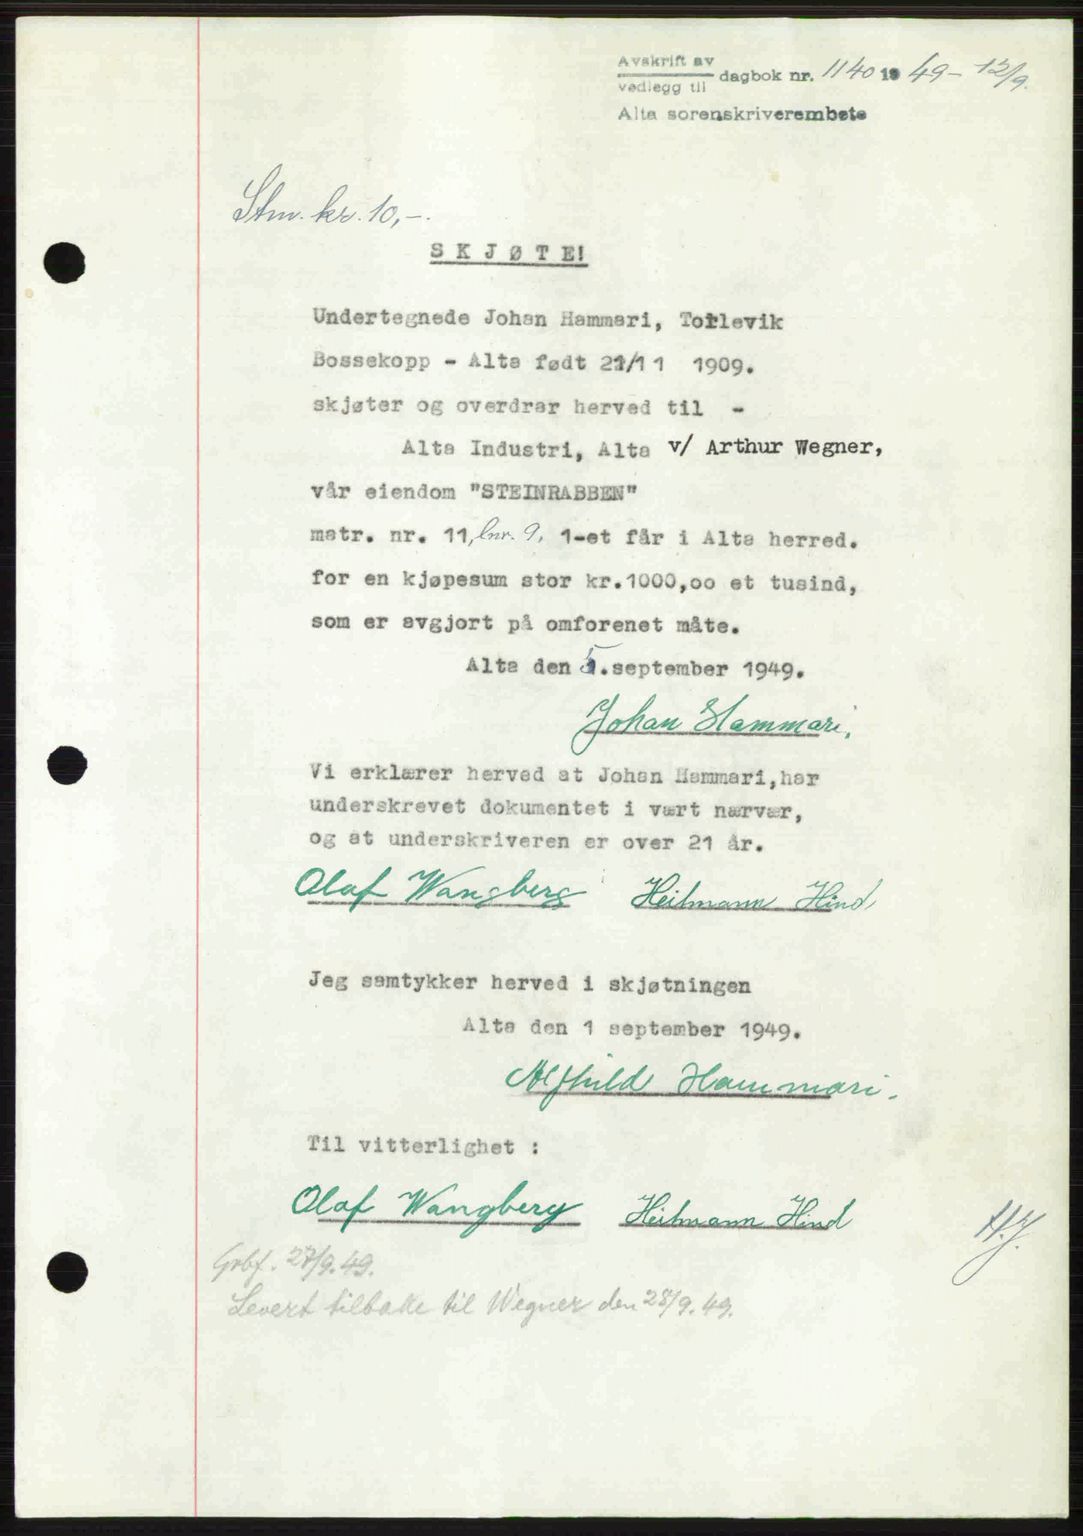 Avskrift av
vedlegg til dagbok nr. 1140 1949 - 12/9.
Alta sorenskriverembete
Stm. kr. 10,-.
SKJØTE!
Undertegnede Johan Hammari, Tollevik
Bossekopp - Alta født 21/11 1909.
skjøter og overdrar herved til -
Alta Industri, Alta v/ Arthur Wegner,
vår eiendom "STEINRABBEN"
matr. nr. 11, bnr. 9, 1-et får i Alta herred.
for en kjøpesum stor kr.1000,oo et tusind,
som er avgjort på omforenet måte.
Alta den 5.september 1949.
Johan Hammari.
Vi erklærer herved at Johan Hammari,har
underskrevet dokumentet i vært nærvær,
og at underskriveren er over 21 år.
Olaf Wangberg Heitmann Hind
Jeg samtykker herved i skjøtningen
Alta den 1 september 1949.
Alfhild Hammari.
Til vitterlighet :
Olaf Wangberg Heitmann Hind
H.J.
Grbf. 27/9.49.
Levert tilbake til Wegner den 28/9.49.